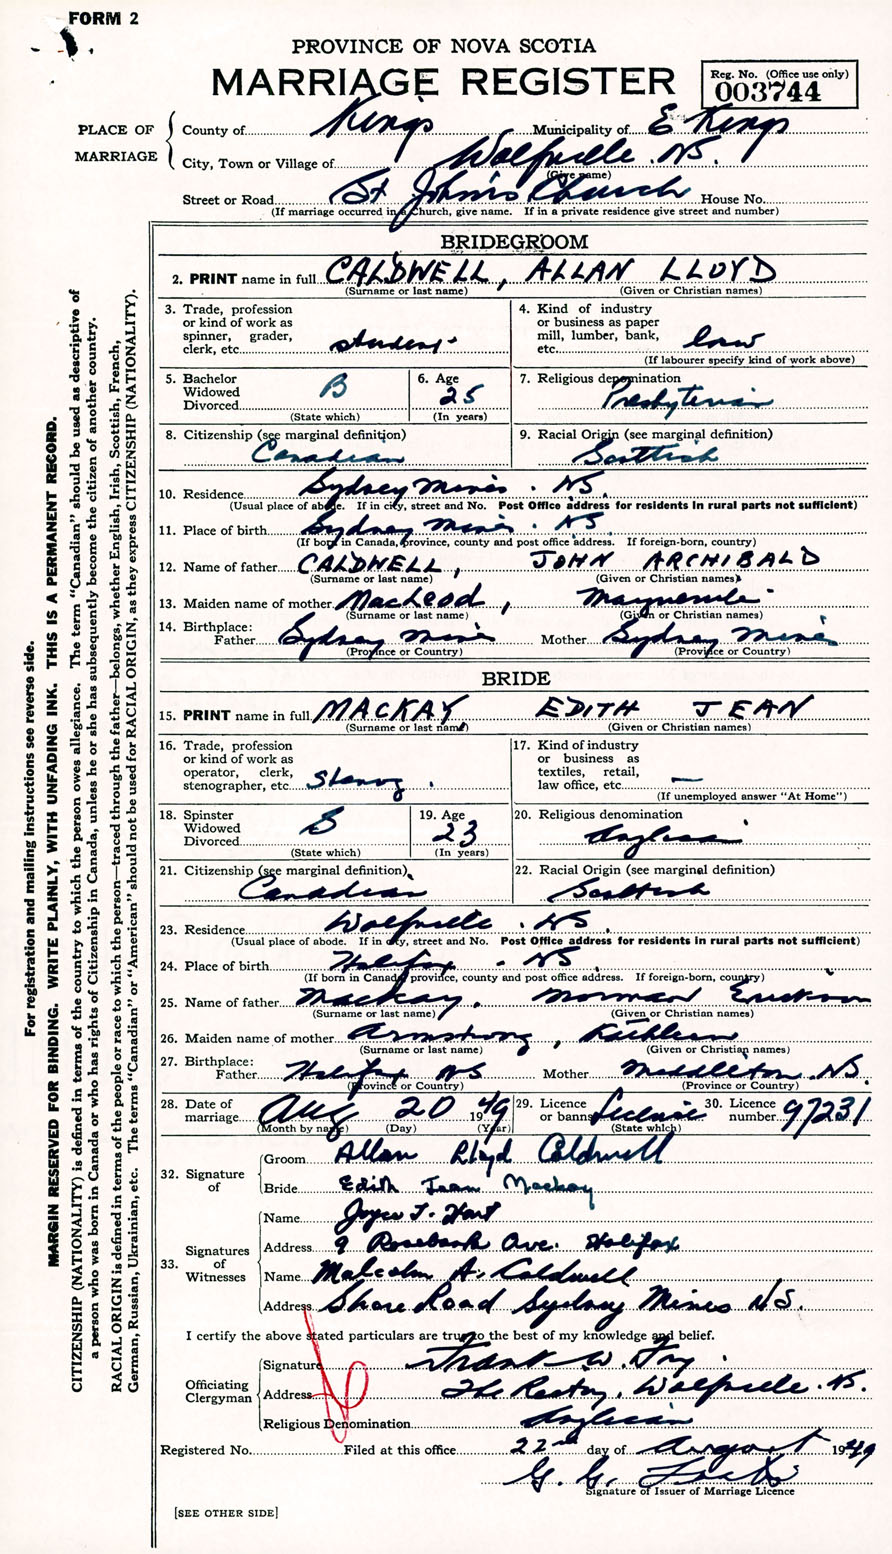 FORM 2
PROVINCE OF NOVA SCOTIA
MARRIAGE REGISTER
Reg. No. (Office use only)
003744
PLACE OF MARRIAGE
County of Kings Municipality of E Kings
City, Town or Village of Wolfville. NS.
(Give name)
Street or Road St John's Church House No.
(If marriage occurred in a Church, give name. If in a private residence give street and number)
BRIDEGROOM
2. PRINT name in full CALDWELL, ALLAN LLOYD
(Surname or last name) (Given or Christian names)
3. Trade, profession
or kind of work as
spinner, grader,
clerk, etc. student
4. Kind of industry
or business as paper
mill, lumber, bank,
etc. law
(If labourer specify kind of work above)
5. Bachelor
Widowed
Divorced B
(State which)
6. Age
25
(In years)
7. Religious denomination
Presbyterian
8. Citizenship (see marginal definition)
Canadian
9. Racial Origin (see marginal definition)
Scottish
10. Residence Sydney Mines. NS.
(Usual place of abode. If in city, street and No. Post Office address for residents in rural parts not sufficient)
11. Place of birth Sydney Mines. NS
(If born in Canada, province, county and post office address. If foreign-born, country)
12. Name of father CALDWELL, JOHN ARCHIBALD
(Surname or last name) (Given or Christian names)
13. Maiden name of mother MacLeod,
(Surname or last name) (Given or Christian names)
14. Birthplace:
Father Sydney Mines Mother Sydney Mines
(Province or Country) (Province or Country)
BRIDE
15. PRINT name in full MACKAY EDITH JEAN
(Surname or last name) (Given or Christian names)
16. Trade, profession
or kind of work as
operator, clerk,
stenographer, etc. Stenog.
17. Kind of industry
or business as
textiles, retail,
law office, etc. —
(If unemployed answer "At Home")
18. Spinster
Widowed
Divorced S
(State which)
19. Age
23
(In years)
20. Religious denomination
Anglican
21. Citizenship (see marginal definition)
Canadian
22. Racial Origin (see marginal definition)
Scottish
23. Residence Wolfville. NS.
(Usual place of abode. If in city, street and No. Post Office address for residents in rural parts not sufficient)
24. Place of birth Halifax - NS.
(If born in Canada, province, county and post office address. If foreign-born, country)
25. Name of father Mackay, Norman
(Surname or last name) (Given or Christian names)
26. Maiden name of mother Armstrong, Kathleen
(Surname or last name) (Given or Christian names)
27. Birthplace:
Father Halifax NS Mother Middleton. NS.
(Province or Country) (Province or Country)
28. Date of
marriage Aug 20 1949
(Month by name) (Day) (Year)
29. Licence
or banns License
(State which)
30. Licence
number 97231
32. Signature of
Groom Allan Lloyd Caldwell
Bride Edith Jean Mackay
33. Signatures of Witnesses
Name Joyce T. Hart
Address 9 Rosebank Ave. Halifax
Name Malcolm A. Caldwell
Address Shore Road Sydney Mines N.S.
I certify the above stated particulars are true to the best of my knowledge and belief.
Officiating Clergyman
Signature Frank W. Fry.
Address The Rectory, Wolfville. NS.
Religious Denomination Anglican
Registered No. Filed at this office 22nd day of August 1949
G. G.
Signature of Issuer of Marriage Licence
[SEE OTHER SIDE]
For registration and mailing instructions see reverse side.
MARGIN RESERVED FOR BINDING. WRITE PLAINLY, WITH UNFADING INK. THIS IS A PERMANENT RECORD.
CITIZENSHIP (NATIONALITY) is defined in terms of the country to which the person owes allegiance. The term "Canadian" should be used as descriptive of
a person who was born in Canada or who has rights of Citizenship in Canada, unless he or she has subsequently become the citizen of another country.
RACIAL ORIGIN is defined in terms of the people or race to which the person—traced through the father—belongs, whether English, Irish, Scottish, French,
German, Russian, Ukrainian, etc. The terms "Canadian" or "American" should not be used for RACIAL ORIGIN, as they express CITIZENSHIP (NATIONALITY).